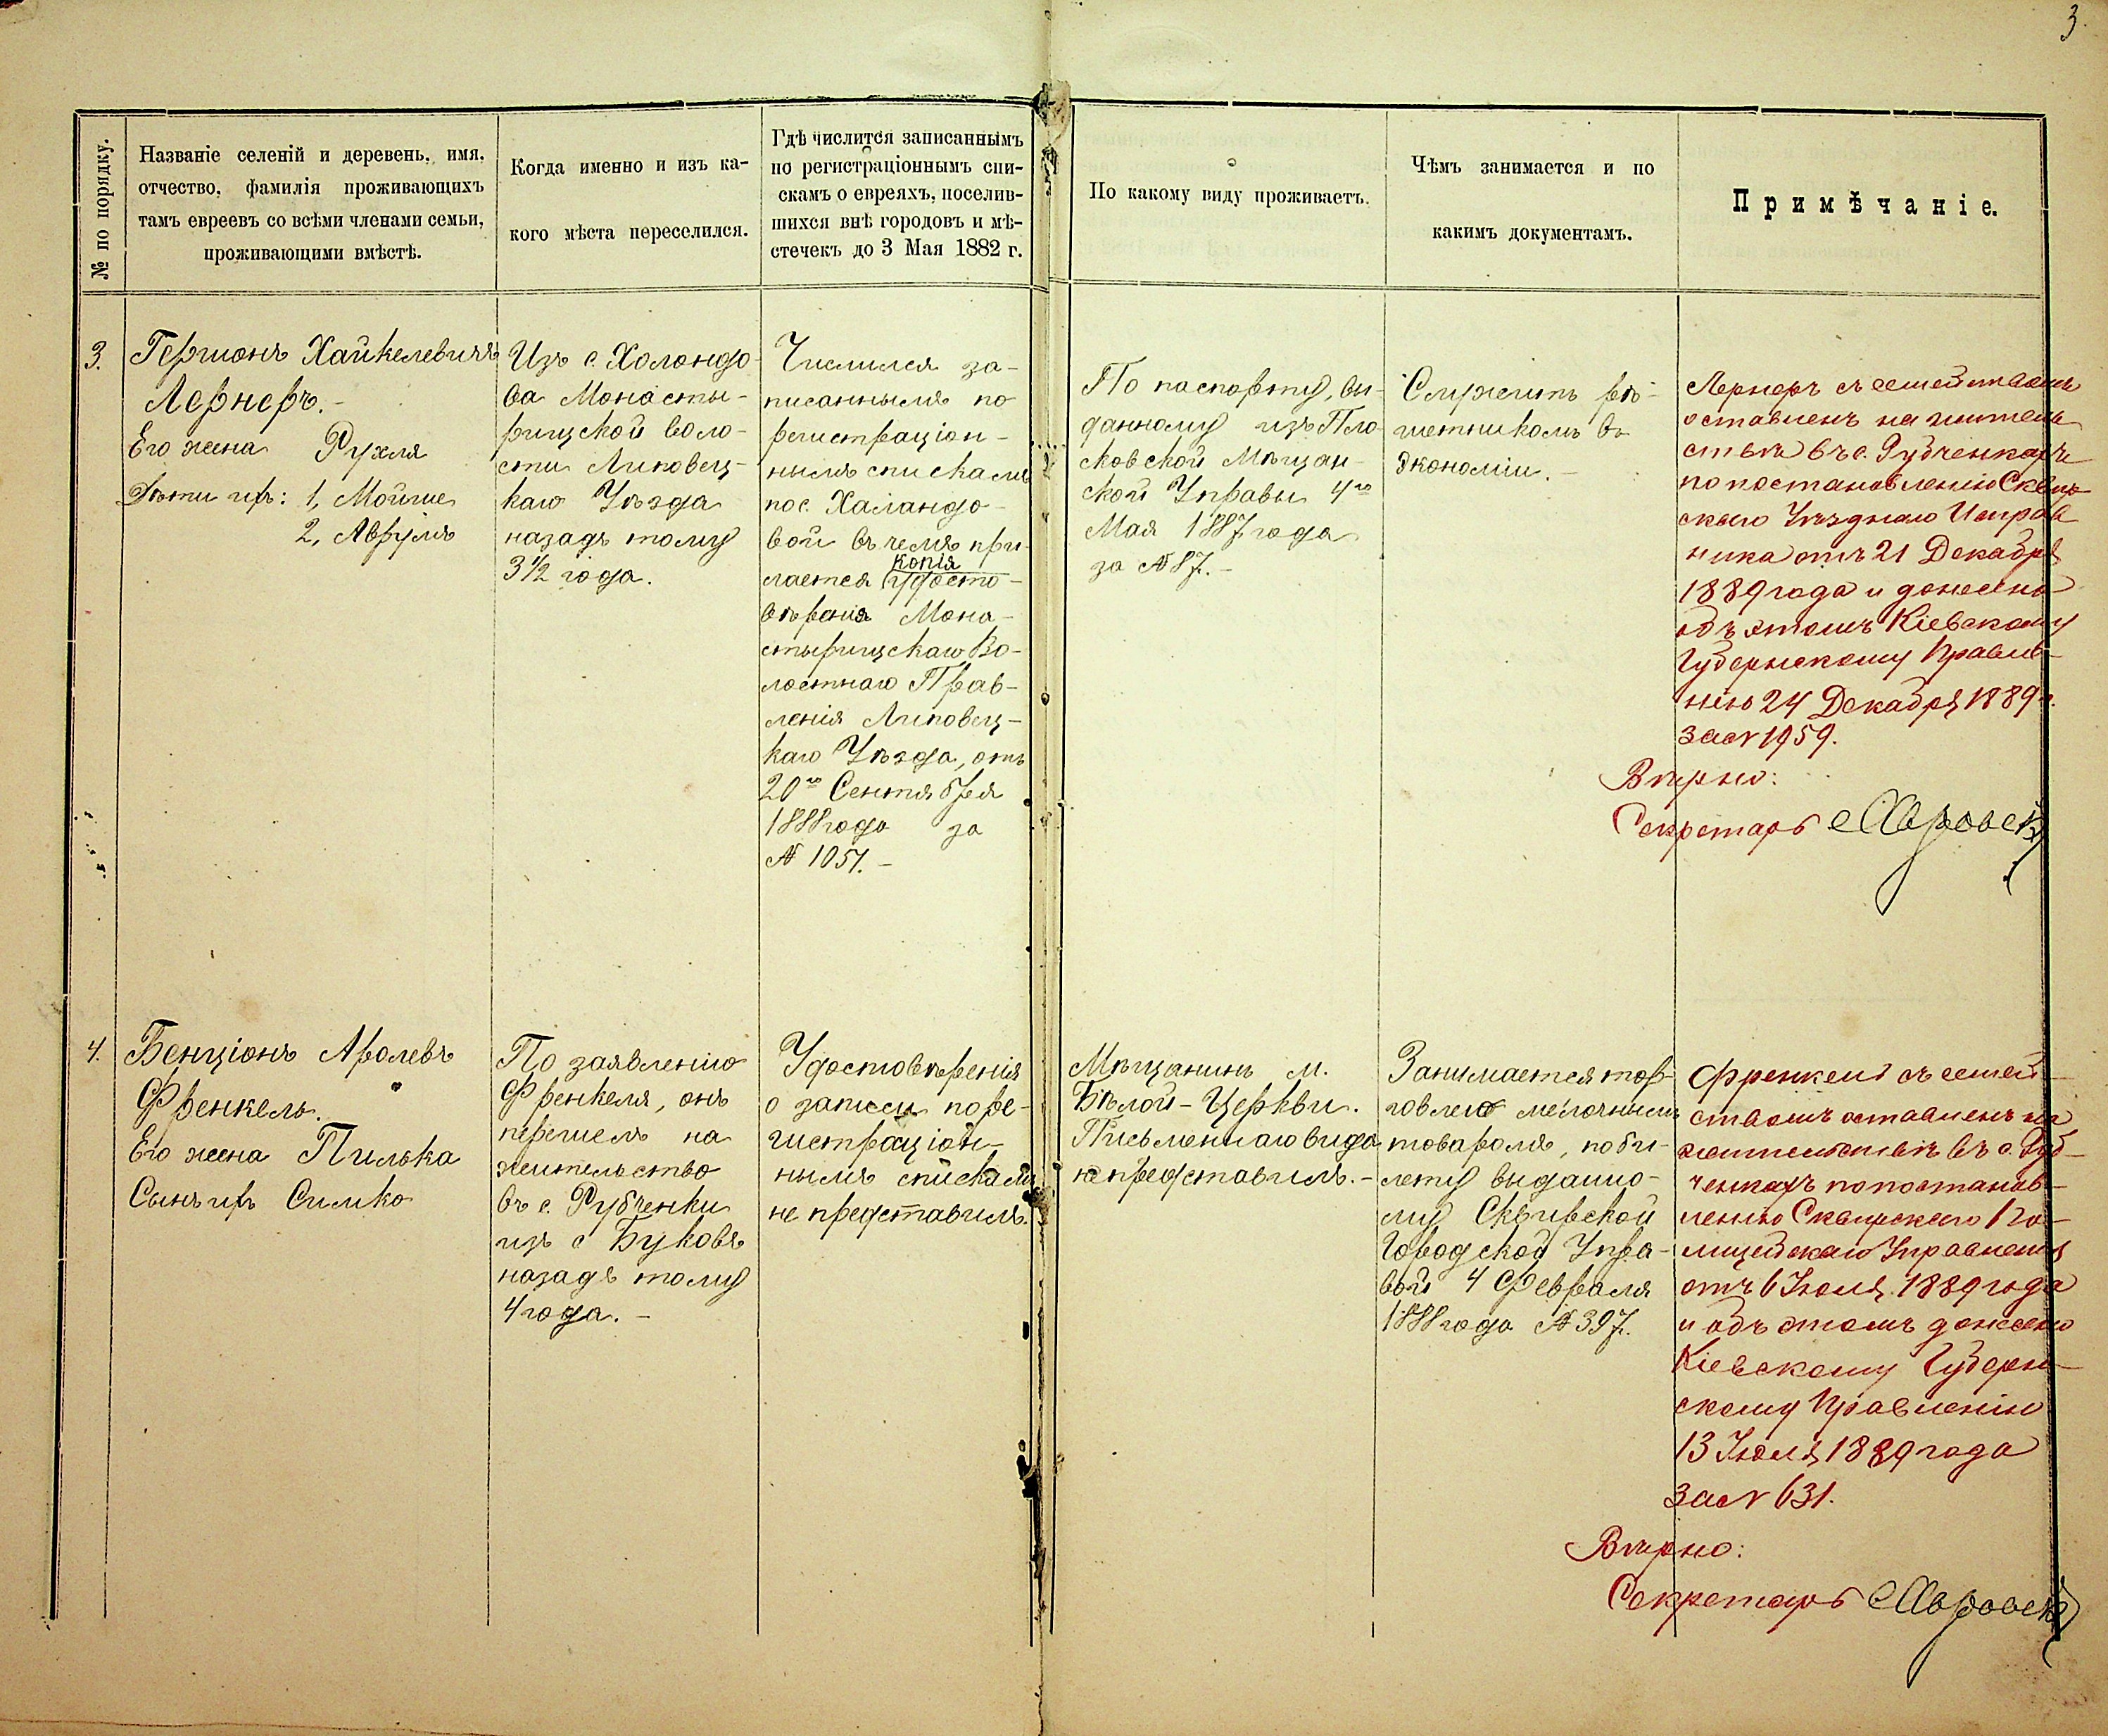 3.
№ по порядку.
Названіе селеній и деревень, имя,
отчество, фамилія проживающихъ
тамъ евреевъ со всѣми членами семьи,
проживающими вмѣстѣ.
Когда именно и изъ ка-
кого мѣста переселился.
Гдѣ числится записаннымъ
по регистраціоннымъ спи-
скамъ о евреяхъ, поселив-
шихся внѣ городовъ и мѣ-
стечекъ до 3 Мая 1882 г.
По какому виду проживаетъ.
Чѣмъ занимается и по
какимъ документамъ.
Примѣчаніе.
3.
Гершонъ Хайкелевичъ
Лернеръ.-
Его жена Рухля
Дѣти ихъ: 1, Мойше
2, Аврумъ
Изъ с. Холондо-
ва Монасты-
рищской воло-
сти Липовец-
каго Уѣзда
назадъ тому
3 1/2 года.
Числился за-
писаннымъ по
регистраціон-
нымъ спискамъ
по с. Халандо-
вой въ чемъ при-
копія
лается удосто-
вѣренія Мона-
стырищскаго Во-
лостнаго Прав-
ленія Липовец-
каго Уѣзда, отъ
20го Сентября
1888 года за
№ 1051.-
По паспорту, вы-
данному изъ Пло-
сковской Мѣщан-
ской Управы 4го
Мая 1887 года
за № 87.-
Служитъ рѣ-
шетникомъ въ
экономіи.-
Лернеръ съ семействомъ
оставленъ на житель-
ствѣ въ с. Рубченкахъ
по постановленію Сквир-
скаго Уѣзднаго Исправ
ника отъ 21 Декабря
1889 года и донесено
объ этомъ Кіевскому
Губернскому Правле-
нію 24 Декабря 1889 г.
за № 1959.
Вѣрно:
Секретарь
4.
Бенціонъ Аролевъ
Френкель.
Его жена Пилька
Сынъ ихъ Симко
По заявленію
Френкеля, онъ
перешелъ на
жительство
въ с. Рубченки
изъ с Буковъ
назадъ тому
4 года.-
Удостовѣренія
о записи по ре-
гистраціон-
нымъ спискамъ
не представилъ.
Мѣщанинъ м.
Бѣлой-Церкви.
Письменнаго вида
не представилъ.-
Занимается тор-
говлею мелочнымъ
товаромъ, по би-
лету выданно-
му Сквирской
Городской Упра-
вой 4 Февраля
1888 года № 397.
Френкель съ семей-
ствомъ оставленъ на
жительствѣ въ с. Руб-
ченкахъ по постанов-
ленію Сквирскаго По-
лицейскаго Управленія
отъ 6 Іюля 1889 года
и объ этомъ донесено
Кіевскому Губерн-
скому Правленію
13 Іюля 1889 года
за № 631.
Вѣрно:
Секретарь